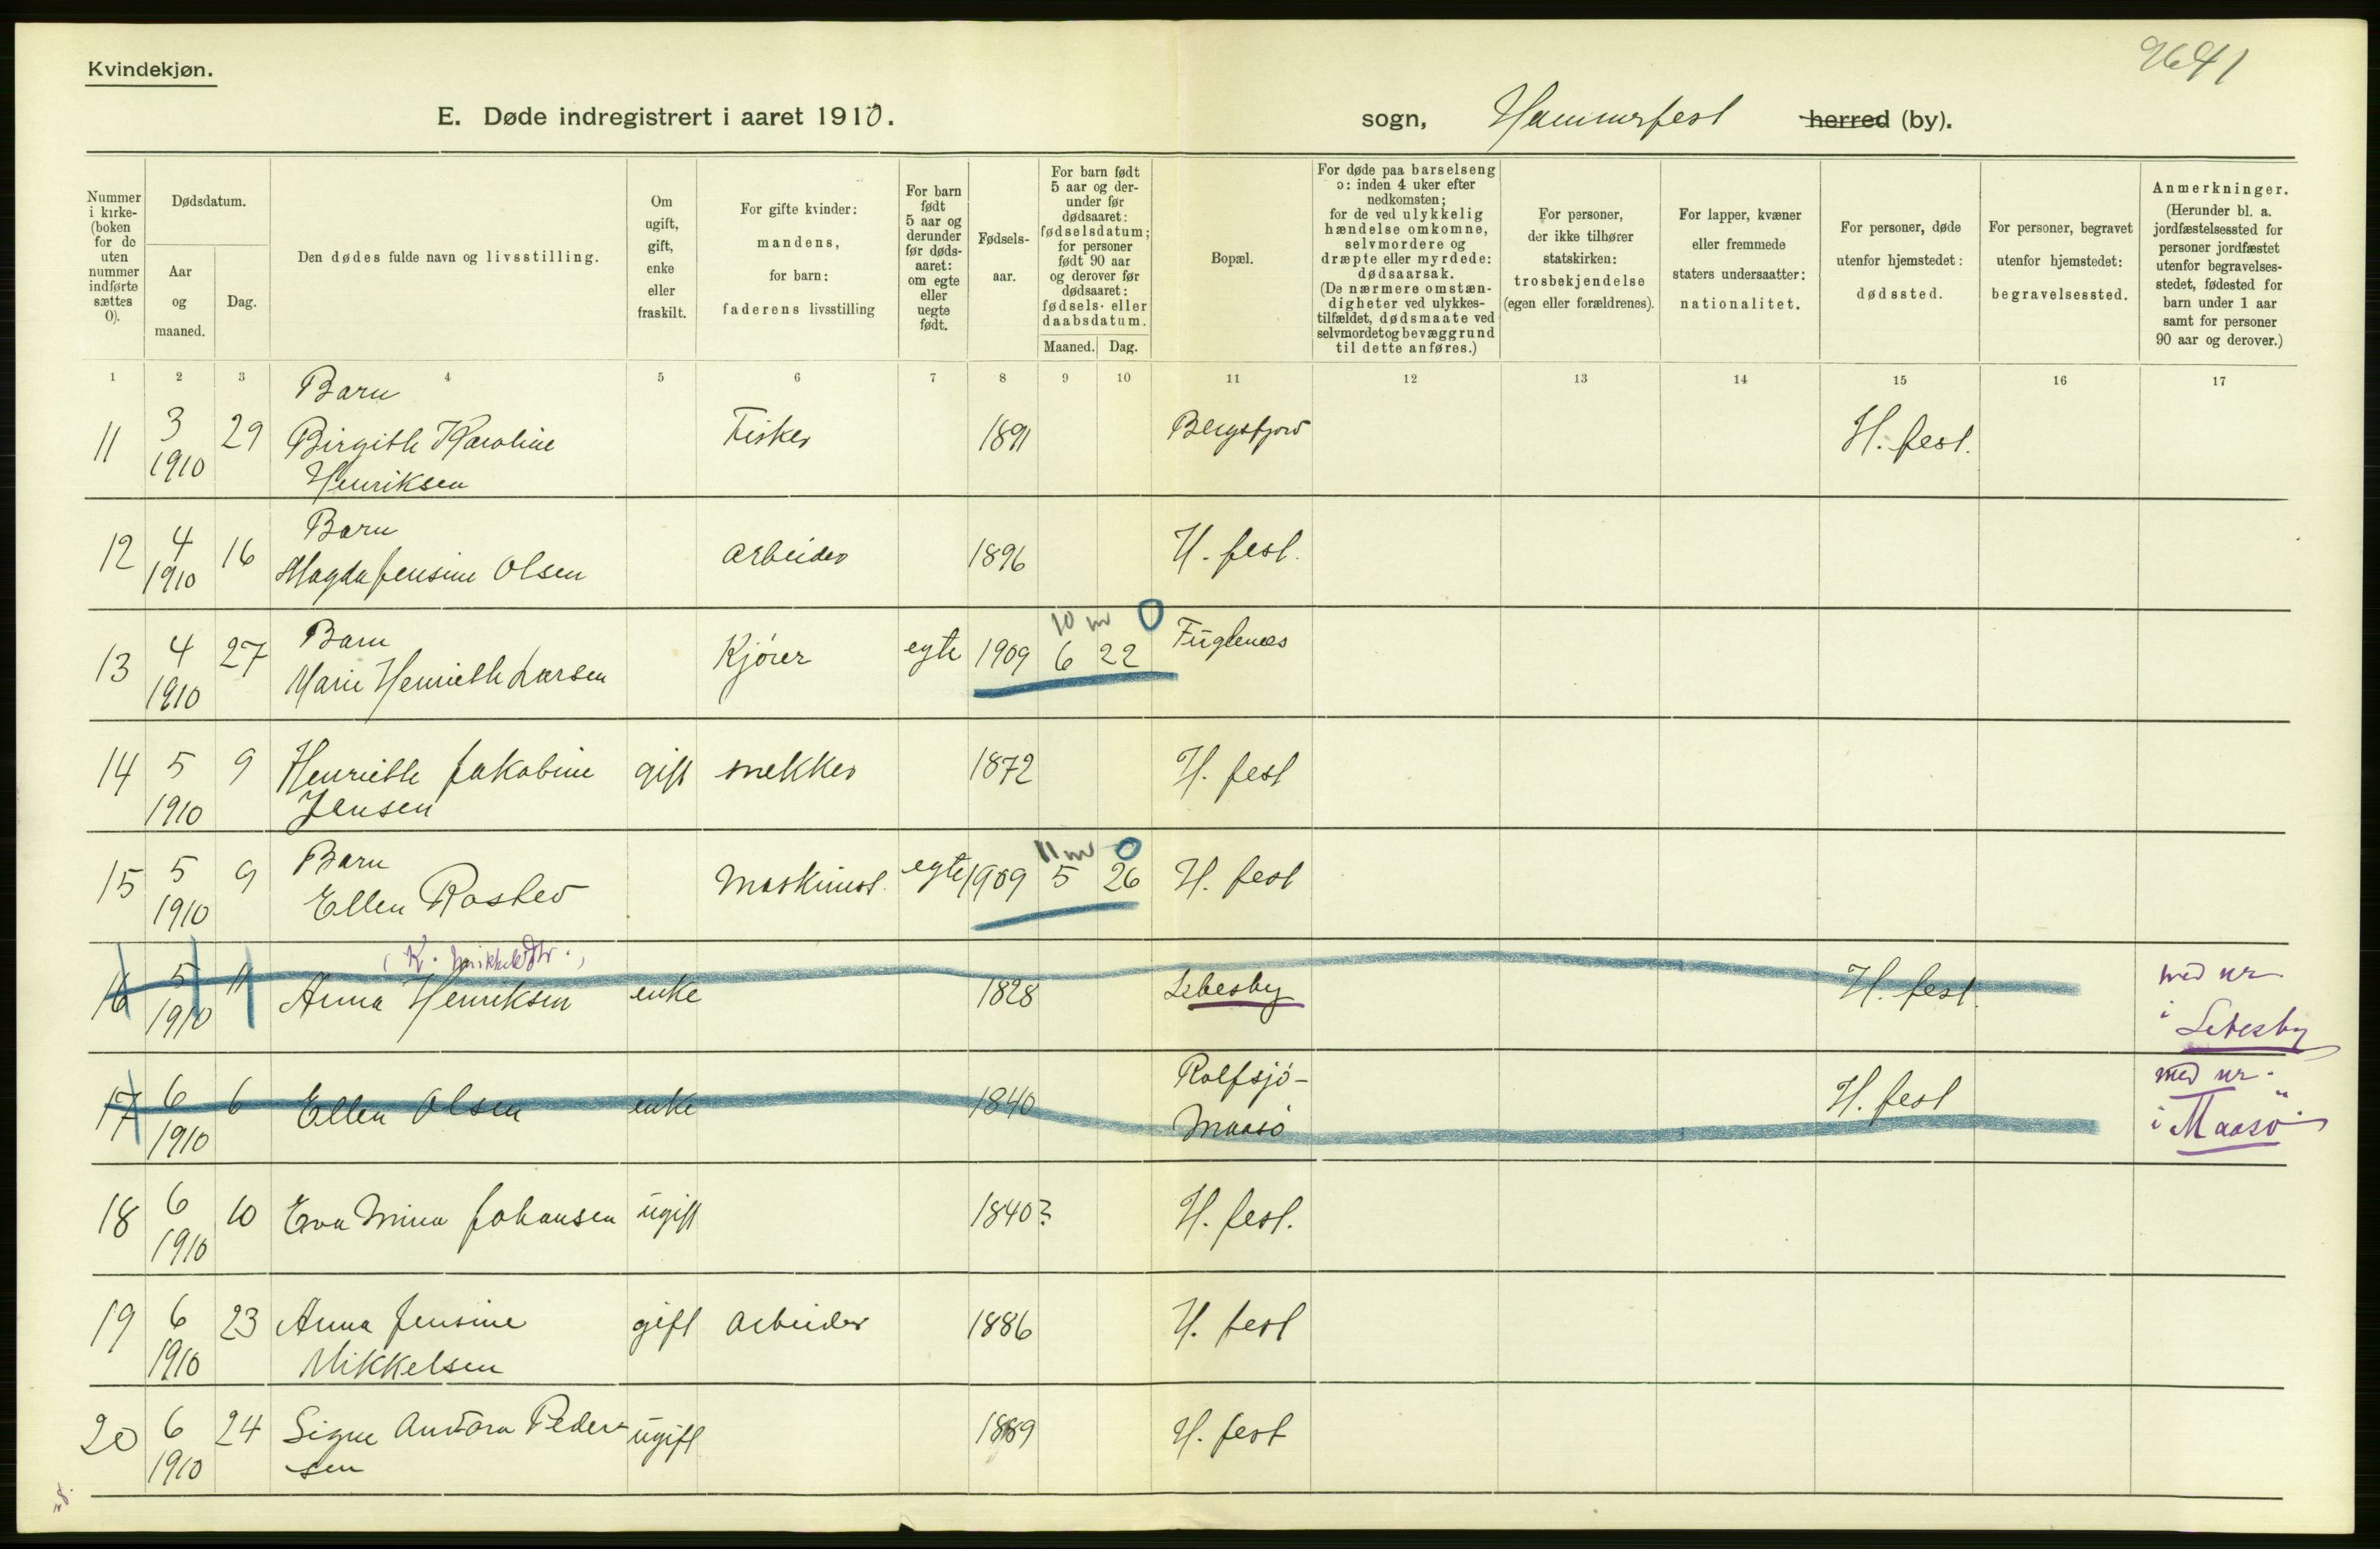 Kvindekjøn.
9641
E. Døde indregistrert i aaret 1910.
sogn, Hammerfest herred (by).
Nummer i kirke- (boken for de uten nummer indførte sættes 0).
Dødsdatum.
Aar og maaned.
Dag.
Den dødes fulde navn og livsstilling.
Om ugift, gift, enke eller fraskilt.
For gifte kvinder: mandens, for barn: faderens livsstilling
For barn født 5 aar og derunder før døds- aaret: om egte eller uegte født.
Fødsels- aar.
For barn født 5 aar og der- under før dødsaaret: fødselsdatum; for personer født 90 aar og derover før dødsaaret: fødsels- eller daabsdatum.
Maaned. Dag.
Bopæl.
For døde paa barselseng ɔ: inden 4 uker efter nedkomsten; for de ved ulykkelig hændelse omkomne, selvmordere og dræpte eller myrdede: dødsaarsak. (De nærmere omstæn- digheter ved ulykkes- tilfældet, dødsmaate ved selvmordet og bevæggrund til dette anføres.)
For personer, der ikke tilhører statskirken: trosbekjendelse (egen eller forældrenes).
For lapper, kvæner eller fremmede staters undersaatter: nationalitet.
For personer, døde utenfor hjemstedet: dødssted.
For personer, begravet utenfor hjemstedet: begravelsessted.
Anmerkninger. (Herunder bl. a. jordfæstelsessted for personer jordfæstet utenfor begravelses- stedet, fødested for barn under 1 aar samt for personer 90 aar og derover.)
1 2 3 4 5 6 7 8 9 10 11 12 13 14 15 16 17
Barn
11 3 29 Birgith Karoline Fisker 1891 Bergsfjord H. fest.
1910 Henriksen
Barn
12 4 16 Magda Jensine Olsen arbeider 1896 H. fest.
1910
Barn 10 m 0
13 4 27 Marie Henrieth Larsen Kjører egte 1909 6 22 Fuglenes
1910
14 5 9 Henriette Jakobine gift snekker 1872 H. fest
1910 Jensen
Barn 11 m 0
15 5 9 Ellen Rasker Maskinist. egte 1909 5 26 H. fest
1910
(K. Mikkelsdtr.)
16 5 11 Anna Henriksen enke 1828 Lebesby H. fest. med nr.
1910 i Lebesby
17 6 6 Ellen Olsen enke 1840 Rolfsjö- H. fest med nr.
1910 Maasö i Maasö.
18 6 10 Eva Mina Johansen ugift 1840? H. fest.
1910
19 6 23 Anna Jensine gift Arbeider 1886 H. fest
1910 Mikkelsen
20 6 24 Signe Andora Peder- ugift 1889 H. fest
1910 sen